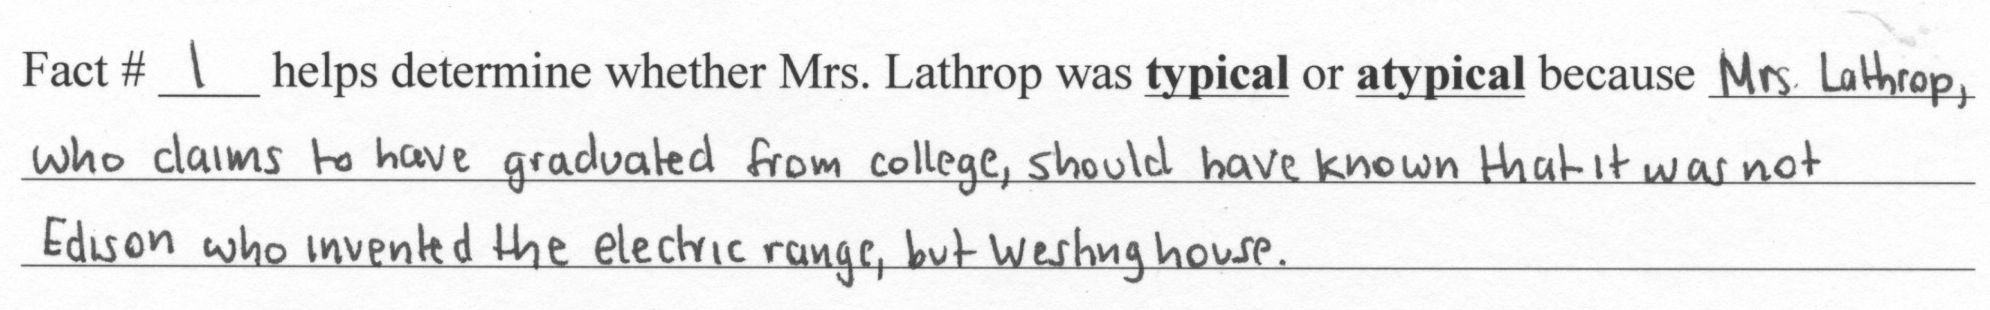 Fact # 1 helps determine whether Mrs. Lathrop was typical or atypical because Mrs. Lathrop,
who claims to have graduated from college, should have known that it was not
Edison who invented the electric range, but Westinghouse.